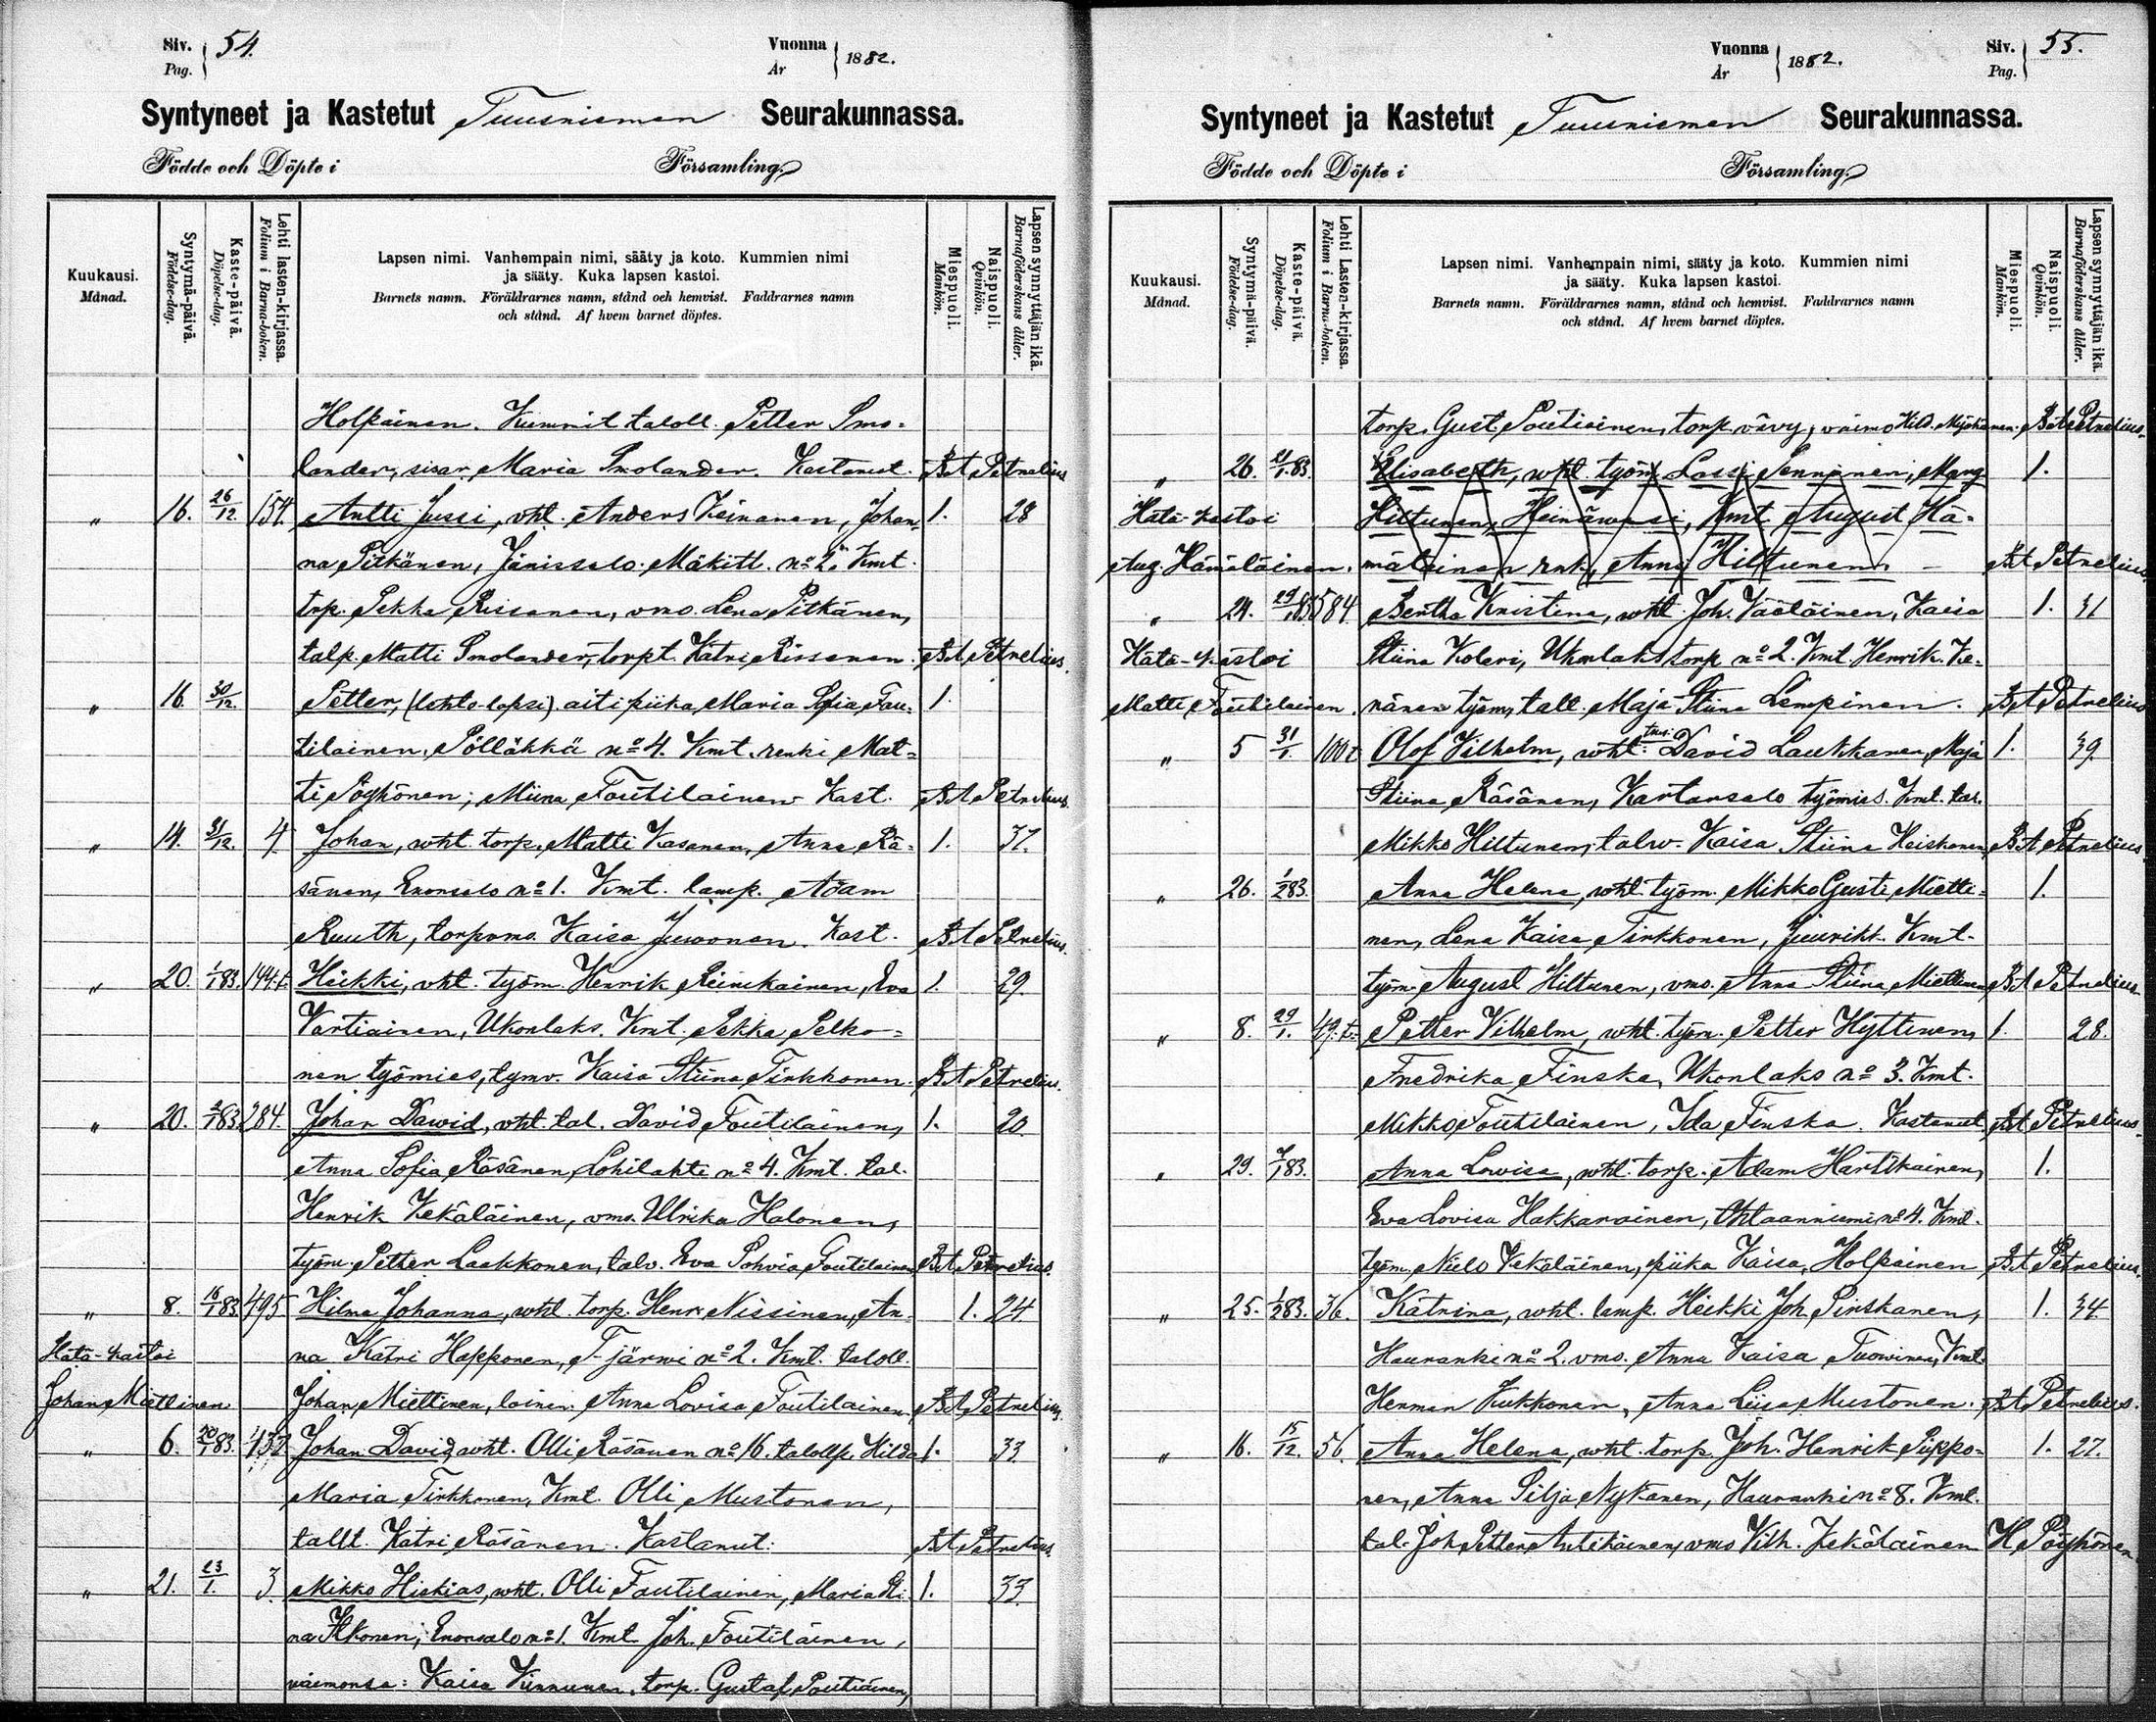 Siv. 54.
Pag.
Vuonna 1882.
År
Syntyneet ja Kastetut Tuusniemen Seurakunnassa.
Födde och Döpte i Församling.
Kuukausi.
Månad.
Syntymä-päivä.
Födelse-dag.
Kaste-päivä.
Döpelse-dag.
Lehti lasten-kirjassa.
Folium i Barna-boken.
Lapsen nimi. Vanhempain nimi, sääty ja koto. Kummien nimi
ja sääty. Kuka lapsen kastoi.
Barnets namn. Föräldrarnes namn, stånd och hemvist. Faddrarnes namn
och stånd. Af hvem barnet döptes.
Miespuoli.
Mankön.
Naispuoli.
Qvinkön.
Lapsen synnyttäjän ikä.
Barnaföderskans ålder.
Holpainen. Kummit taloll. Petter Smo-
lander, sisar Maria Smolander. Kastanut. B A Petrelius
„ 16. 26/12. 154. Antti Jussi, vht. Anders Keinanen, Johan- 1. 28
na Pitkänen, Jänissalo Mäkitt. no 2. Kmt.
trp. Pekka Rissanen, vmo. Lena Pitkänen,
talp. Matti Smolander, torpt. Katri Rissanen. B A Petrelius.
„ 16. 30/12. Petter, (lehto-lapsi) äiti piika Maria Sofia Tou- 1.
tilainen, Pölläkkä no 4. Kmt. renki Mat-
ti Pöyhönen; Miina Toutilainen Kast. B A Petrelius.
„ 14. 31/12. 4. Johan, wht. torp. Matti Kasanen, Anna Rä- 1. 37.
sänen, Enonsalo no 1. Kmt. lamp. Adam
Ruuth, torpvmo. Kaisa Juvonen. Kast. B A Petrelius.
„ 20. 1/1 83. 144.t. Heikki, vht. työm. Henrik Reinikainen, Eva 1. 29.
Vartiainen, Ukonlaks. Kmt. Pekka Pelko-
nen työmies, tymv. Kaisa Stiina Tirkkonen. B A Petrelius.
„ 20. 2/1 83. 284. Johan Dawid, vht. tal. David Toutilainen, 1. 20.
Anna Sofia Räsänen, Lohilahti no 4. Kmt. tal.
Henrik Kekäläinen, vmo. Ulrika Halonen,
työm. Petter Laakkonen, talv. Eva Sohvia Toutilainen B A Petrelius.
„ 8. 16/1 83. 495 Hilma Johanna, wht. torp. Henr. Nissinen, An- 1. 24
Hätä-kastoi na Katri Happonen, T-järwi no 2. Kmt. taloll.
Johan Miettinen Johan Miettinen, loinen Anna Lovisa Toutilainen B A Petrelius.
„ 6. 20/1 83. 137. Johan David, wht. Olli Räsänen no 16. talollp. Hilda 1. 33
Maria Tirkkonen, Kmt. Olli Mustonen,
tallt. Katri Räsänen. Kastanut: B A Petrelius.
„ 21. 23/1. 3. Mikko Hiskias, wht. Olli Toutilainen, Maria Sti- 1. 33.
na Itkonen; Enonsalo no 1. Kmt Joh. Toutilainen,
vaimonsa: Kaisa Kinnunen, torp. Gustaf Poutiainen,
Vuonna 1882.
År
Siv. 55.
Pag.
Syntyneet ja Kastetut Tuusniemen Seurakunnassa.
Födde och Döpte i Församling.
Kuukausi.
Månad.
Syntymä-päivä.
Födelse-dag.
Kaste-päivä.
Döpelse-dag.
Lehti Lasten-kirjassa.
Folium i Barna-boken.
Lapsen nimi. Vanhempain nimi, sääty ja koto. Kummien nimi
ja sääty. Kuka lapsen kastoi.
Barnets namn. Föräldrarnes namn, stånd och hemvist. Faddrarnes namn
och stånd. Af hvem barnet döptes.
Miespuoli.
Mankön.
Naispuoli.
Qvinkön.
Lapsen synnyttäjän ikä.
Barnaföderskans ålder.
torp. Gust Poutiainen, torp. vävy, vaimo Hild. B A Petrelius.
„ 26. 21/1 83. Elisabeth, wht. työm. Lassi Sennänen, Marg 1.
Hätä-kastoi Hiltunen, Heinäwesi, Kmt August Hä-
Aug. Hämäläinen. mäläinen rnk, Anna Hiltunen. B A Petrelius
„ 24. 584 Bertha Kristina, wht. Joh. Vääläinen, Kaisa 1. 31
Hätä-kastoi Stiina Koleri, Ukonlaks torp no 2. Kmt. Henrik Ke-
Matti Toutilainen. nänen työm, tall. Maja Stiina Lempinen. B A Petrelius
„ 5 31/1. 100t Olof Vilhelm, wht. David Laukkanen, Maja 1. 39.
Stiina Räsänen, Kartansalo työmies. Kmt. tal.
Mikko Hiltunen, talw. Kaisa Stiina Heiskanen B A Petrelius
„ 26. 1/2 83. Anna Helena, wht. työm. Mikko Gusti Mietti- 1.
nen, Lena Kaisa Tirkkonen, Juurikk. Kmt.
työm. August Hiltunen, vmo. Anna Stiina Miettinen B A Petrelius.
„ 8. 29/1. 49.t. Petter Vilhelm, wht. työm. Petter Hyttinen, 1. 28.
Fredrika Finska, Ukonlaks no 3. Kmt.
Mikko Toutilainen, Ida Finska. Kastanut B A Petrelius.
„ 29. 7/1 83. Anna Lowisa, wht. torp. Adam Hartikainen, 1.
Eva Lovisa Hakkarainen, Ohtaanniemi no 4. Kmt.
työm. Niels Kekäläinen, piika Kaisa Holpainen B A Petrelius.
„ 25. 1/2 83. 36. Katriina, wht. lamp. Heikki Joh. Pirskanen, 1. 34.
Hauranki no 2. vmo. Anna Kaisa Tuowinen, Kmt.
Herman Kukkonen, Anna Liisa Mustonen. B A Petrelius.
„ 16. 15/12. 56. Anna Helena, wht. torp Joh. Henrik Piippo- 1. 27.
nen, Anna Silja Nykänen, Hauranki no 8. Kmt.
tal. Joh Petter Antikainen, vmo Vilh. Kekäläinen H Pöyhönen